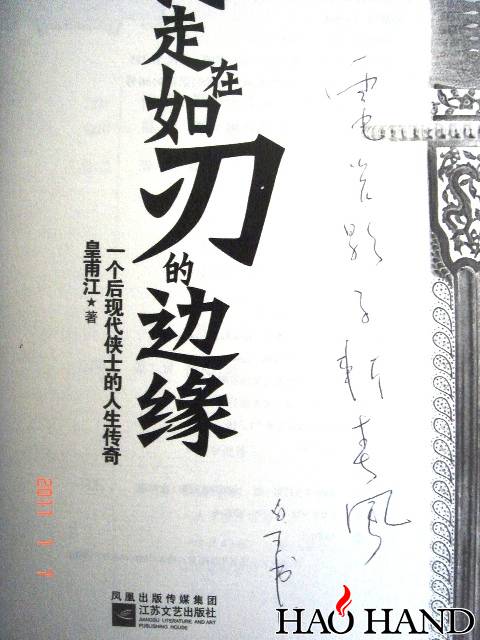 走在如刃的边缘
一个后现代侠士的人生传奇
皇甫江★著
電光影子斬春風
2011 1 1
凤凰出版传媒集团
江苏文艺出版社
JIANGSU LITERATURE AND ART
PUBLISHING HOUSE
HAO HAND